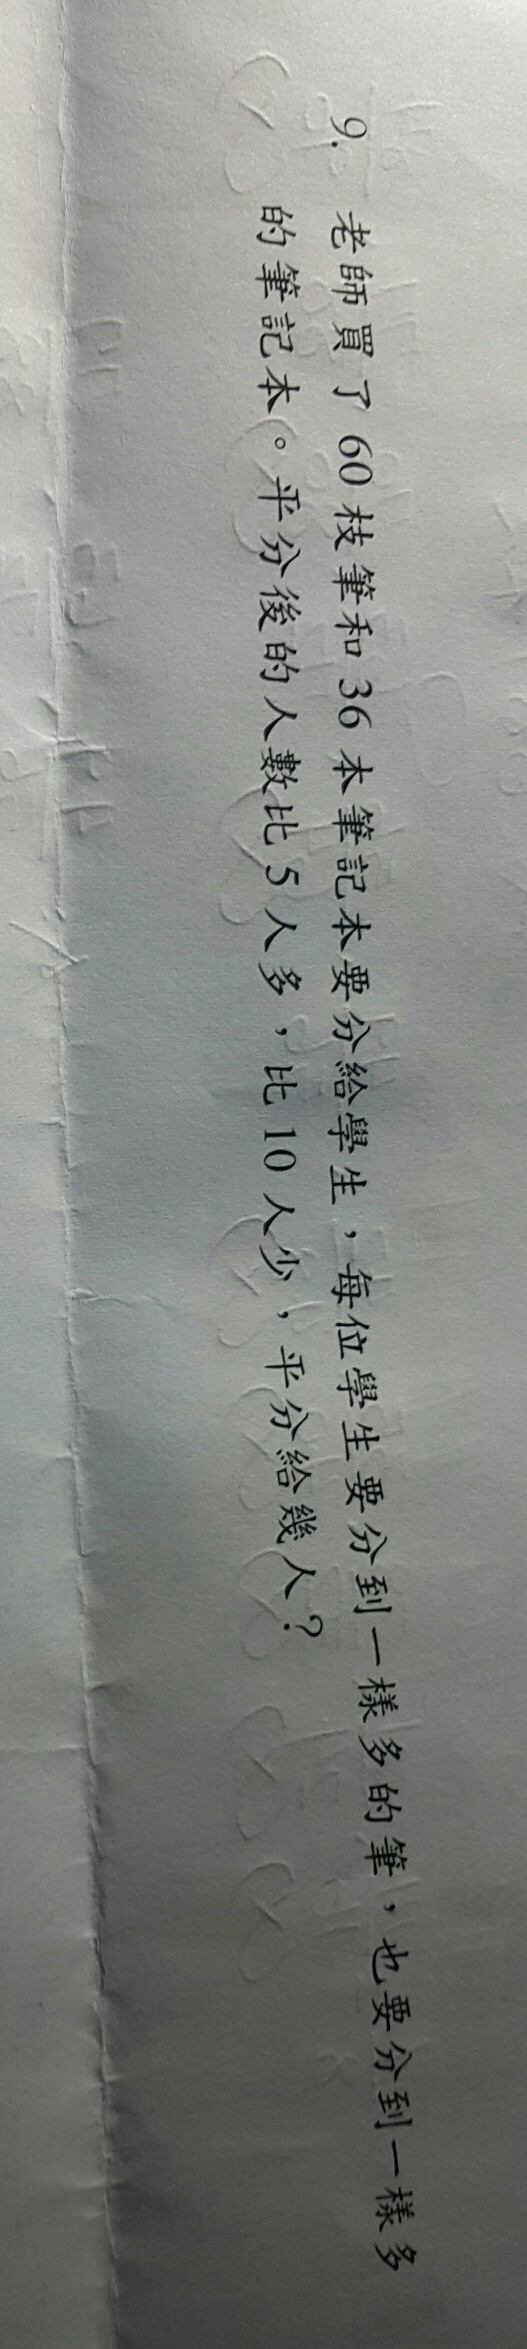 9. 老師買了 60 枝筆和 36 本筆記本要分給學生，每位學生要分到一樣多的筆，也要分到一樣多
的筆記本。平分後的人數比 5 人多，比 10 人少，平分給幾人？